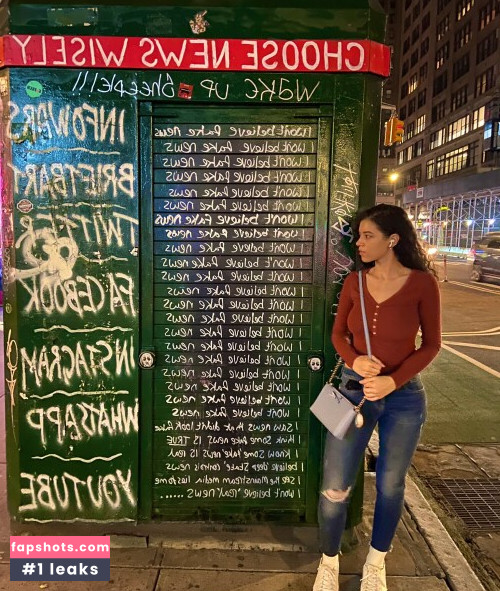 CHOOSE NEWS WISELY
WAKE UP Sheeple!!!
INFOWERS
BRIETBART
TWITTER
FACEBOOK
INSTAGRAM
WHATSAPP
YOUTUBE
I won't believe fake news
I won't believe fake news
I won't believe fake news
I won't believe fake news
I won't believe fake news
I won't believe fake news
I won't believe fake news
I won't believe fake news
I won't believe fake news
I won't believe fake news
I won't believe fake news
I won't believe fake news
I won't believe fake news
I won't believe fake news
I won't believe fake news
I won't believe fake news
I won't believe fake news
I won't believe fake news
I won't believe fake news
I won't believe fake news
I won't believe fake news
I saw news that didn't look fake
I think some fake news IS TRUE
I know some fake news IS real
I believe "Deep State" news
I see the Mainstream media lies to me
I won't believe "real" news ......
fapshots.com
#1 leaks